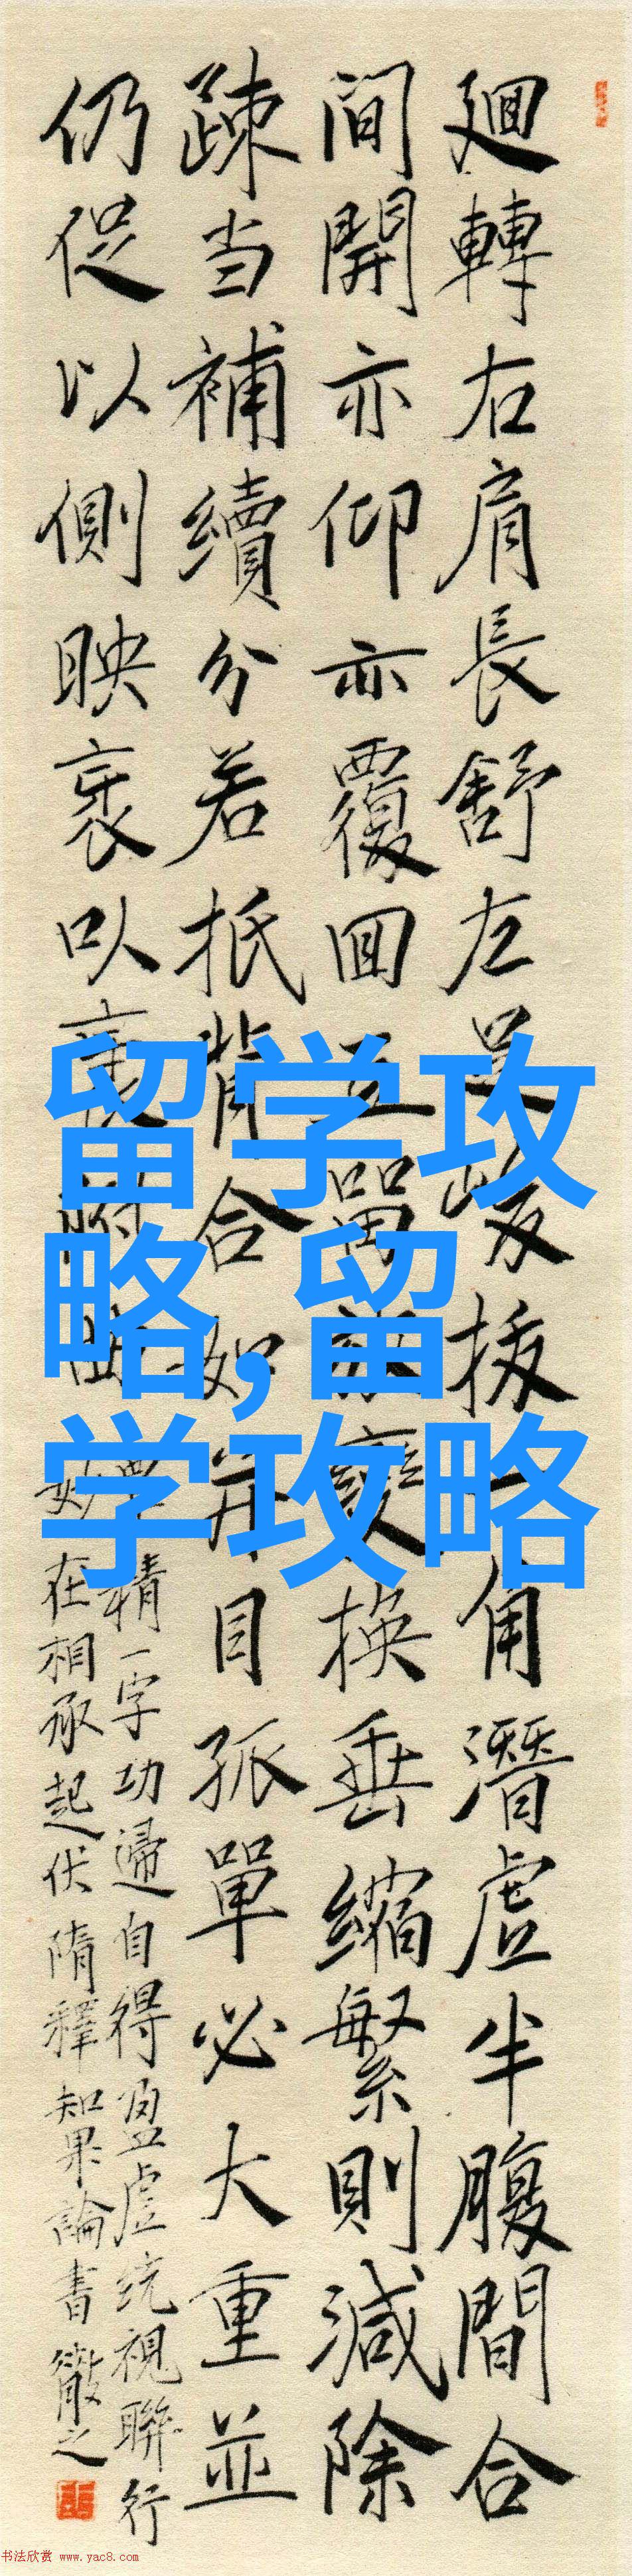 廻轉右肩長舒左足峻拔角潛虛半腹間合
間開亦仰亦覆回互留變換垂縮繁則減除
疎当補續分若抵背合如目孤單必大重並
仍促以側映衺以
精一字功歸自得盈虛統視聯行
妙在相承起伏隋釋知果論書徹之
留学攻
略,留
学攻略
书法欣赏 www.yac8.com